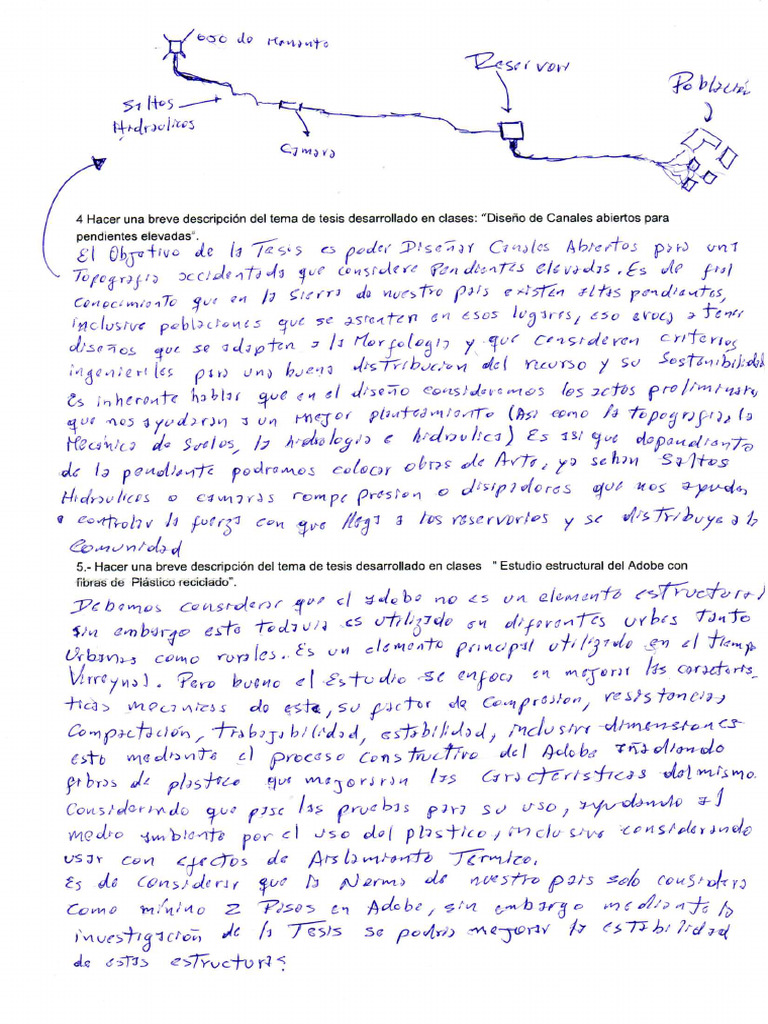 ojo de Manante
Reservorio
Población
Saltos
Hidraulicos
Camara
4 Hacer una breve descripción del tema de tesis desarrollado en clases: “Diseño de Canales abiertos para
pendientes elevadas“.
El Objetivo de la Tesis es poder Diseñar Canales Abiertos para una
Topografia accidentada que considere Pendientes elevadas. Es de fiel
conocimiento que en la Sierra de nuestro pais existen altas pendientes,
inclusive poblaciones que se asienten en esos lugares, eso avoca a tener
diseños que se adapten a la Morfologia y que consideren criterios
ingenieriles para una buena distribucion del recurso y su Sostenibilidad
Es inherente hablar que en el diseño consideremos los actos preliminares
que nos ayudaran a un mejor planteamiento (Asi como la topografia, la
Mecánica de Suelos, la hidrologia e hidraulica) Es asi que dependiente
de la pendiente podremos colocar obras de Arte, ya sehan Saltos
Hidraulicos o camaras rompe presion o disipadores que nos ayuden
a controlar la fuerza con que llega a los reservorios y se distribuye a la
Comunidad
5.- Hacer una breve descripción del tema de tesis desarrollado en clases " Estudio estructural del Adobe con
fibras de Plástico reciclado”.
Debemos considerar que el adobe no es un elemento estructural
sin embargo este todavia es utilizado en diferentes urbes tanto
Urbanas como rurales. Es un elemento principal utilizado en el tiempo
Virreynal. Pero bueno el Estudio se enfoca en mejorar las caracteris-
ticas mecanicas de este, su factor de Compresion, resistencia,
Compactación, trabajabilidad, estabilidad, inclusive dimensiones
esto mediante el proceso constructivo del Adobe añadiendo
fibras de plastico que mejoraran las Caracteristicas del mismo.
Considerando que pase las pruebas para su uso, ayudando al
medio ambiente por el uso del plastico, inclusive considerando
usar con efectos de Aislamiento Termico.
Es de considerar que la Norma de nuestro pais solo considera
como mínimo 2 Pisos en Adobe, sin embargo mediante la
investigación de la Tesis se podria mejorar la estabilidad
de estas estructuras